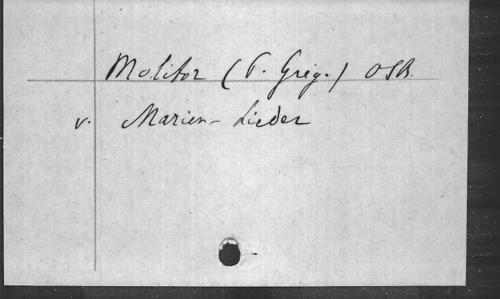 Molitor (P. Greg.) OSB.
v. Marien-Lieder